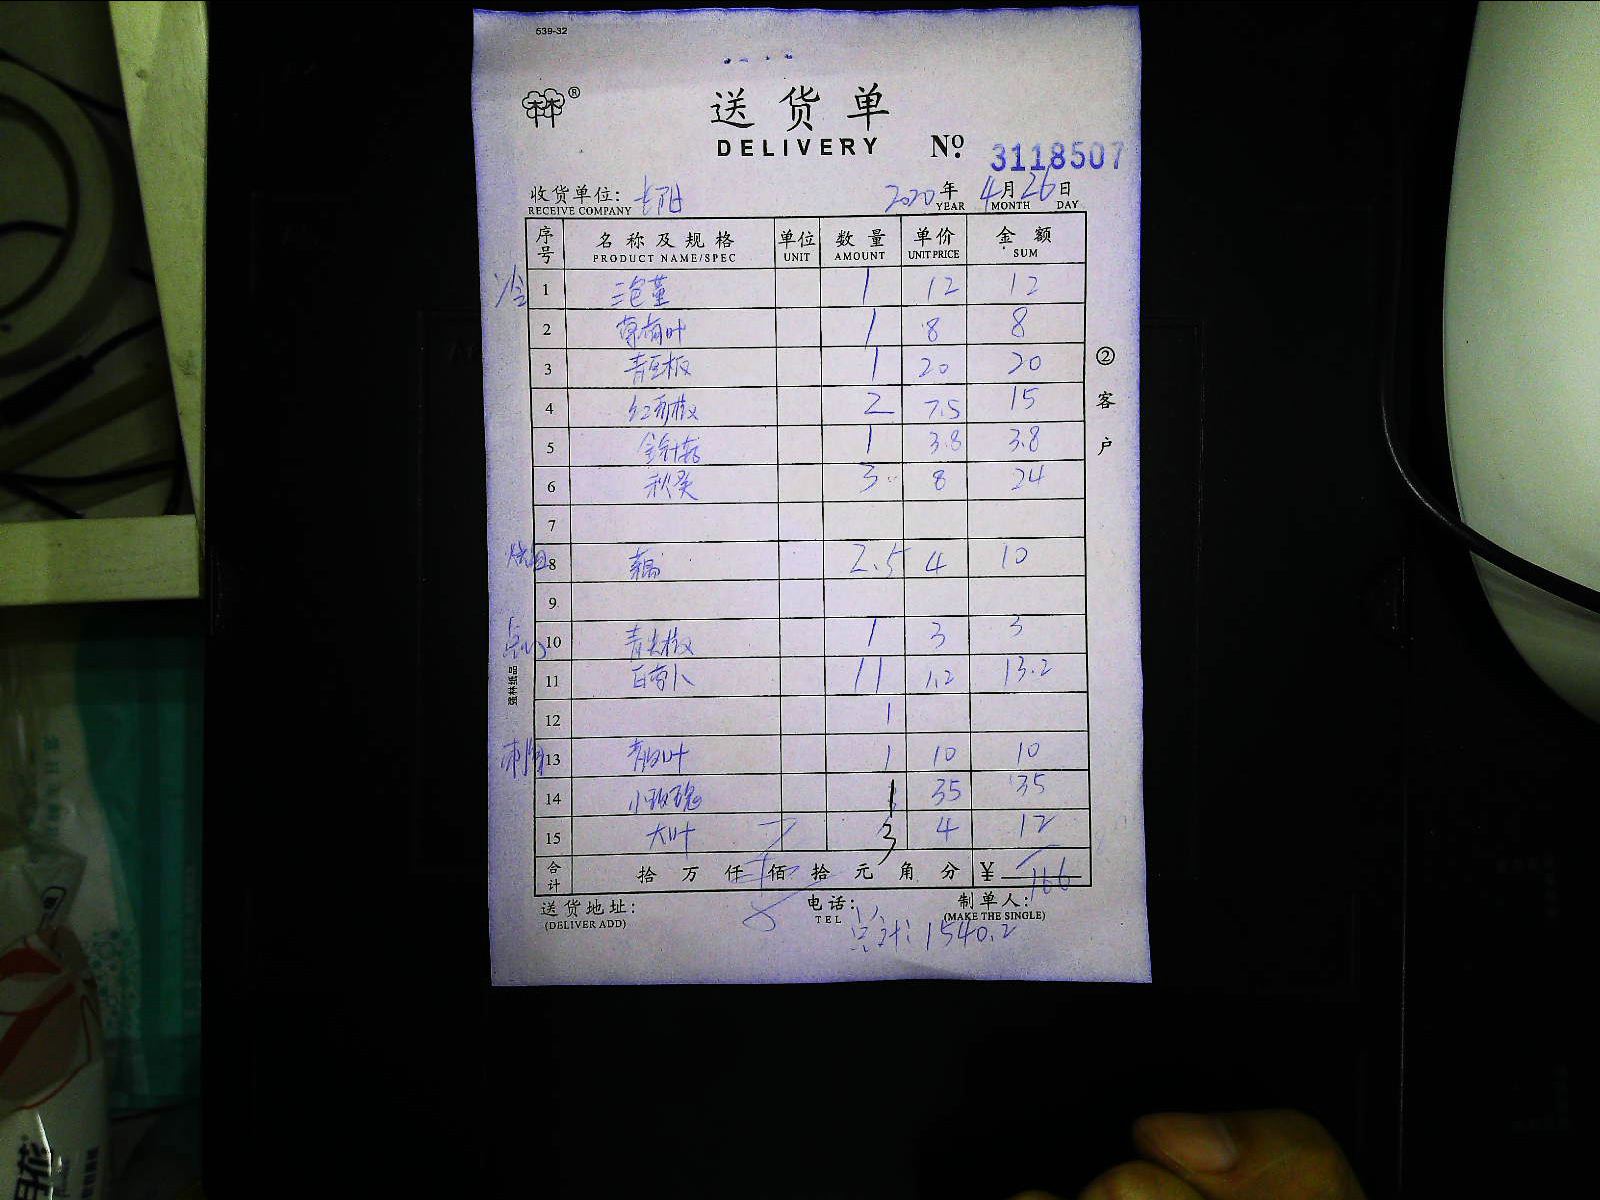 539-32
送货单
DELIVERY
№ 3118507
收货单位: 2020年 4月26日
RECEIVE COMPANY YEAR MONTH DAY
序号 名称及规格 单位 数量 单价 金额
PRODUCT NAME/SPEC UNIT AMOUNT UNIT PRICE SUM
冷 1 三色堇 1 12 12
2 薄荷叶 1 8 8
3 青豆板 1 20 20
4 红尖椒 2 7.5 15
5 金针菇 1 3.8 3.8
6 秋葵 3 8 24
7
8 2.5 4 10
9
点心 10 青尖椒 1 3 3
11 白萝卜 11 1.2 13.2
12 1
刺身 13 1 10 10
14 小玫瑰 1 35 35
15 大叶 3 4 12
合计 拾 万 仟 佰 拾 元 角 分 ¥ 166
送货地址: 电话: 制单人:
(DELIVER ADD) TEL (MAKE THE SINGLE)
总计: 1540.2
②客户
强林纸品